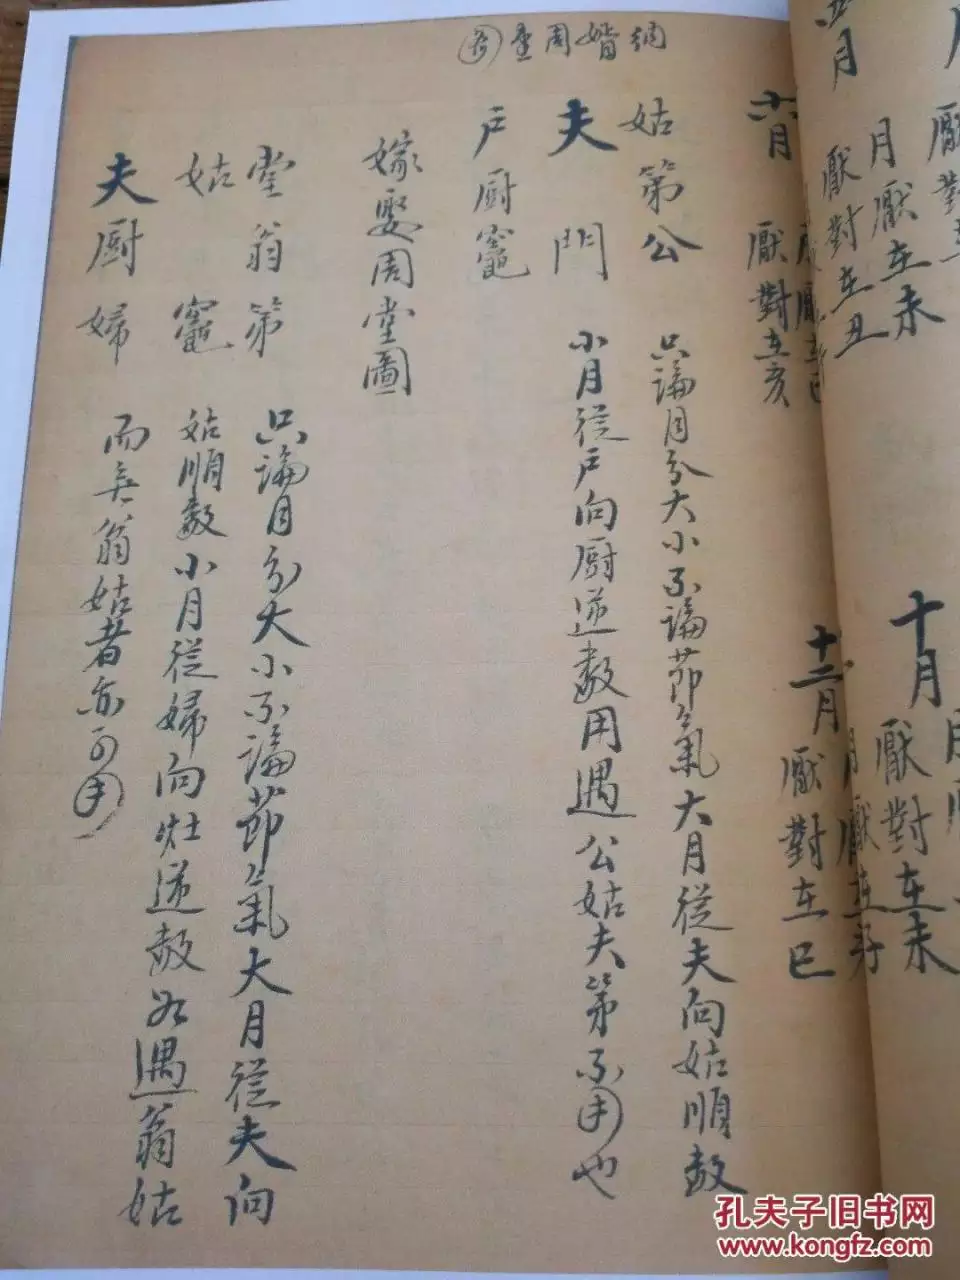 納婿周堂
姑第公
夫 門
戶厨竈
只論月分大小不論節氣大月從夫向姑順数
小月從戶向厨逆数用遇公姑夫第不用也
嫁娶周堂圖
堂翁第
姑 竈
夫厨婦
只論月分大小不論節氣大月從夫向
姑順数小月從婦向灶逆数如遇翁姑
而無翁姑者亦可用
五月
六月
厭對在亥
月厭在未
厭對在丑
十月
厭對在未
十二月
厭對在巳
孔夫子旧书网
www.kongfz.com